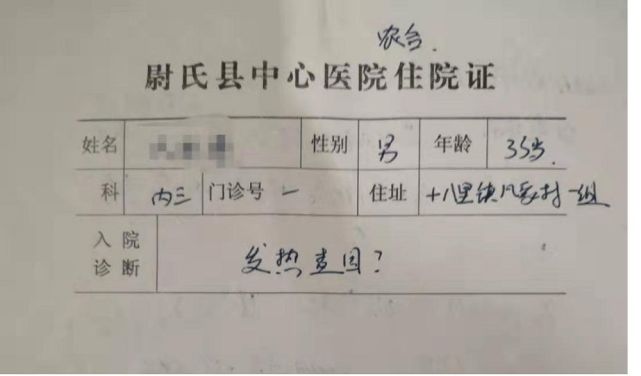 农合.
尉氏县中心医院住院证
姓名 性别 男 年龄 35岁.
科 内三 门诊号 一 住址 十八里镇 村一组
入院诊断 发热查因?